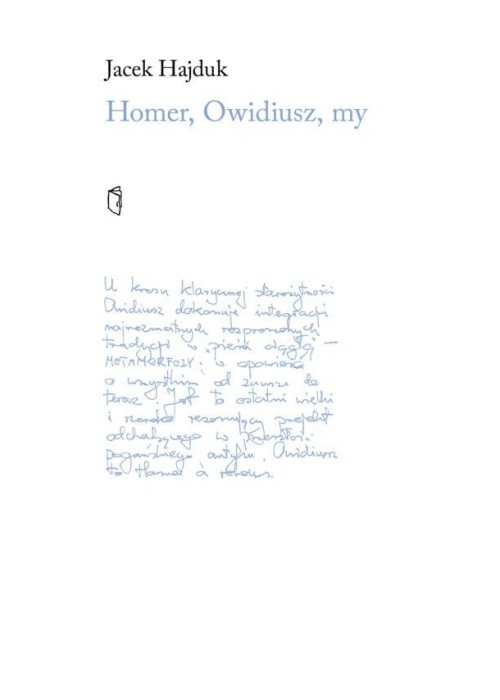 Jacek Hajduk
Homer, Owidiusz, my
U kresu klasycznej starożytności
Owidiusz dokonuje integracji
najrozmaitszych rozproszonych
tradycji w „pieśń ciągłą" —
METAMORFOZY: w opowieść
o wszystkim od zawsze do
teraz. Jest to ostatni wielki
i szeroko rezonujący projekt
odchodzącego w przeszłość
pogańskiego antyku. Owidiusz
to Homer à rebours.